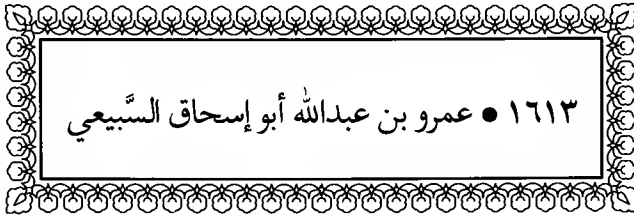 ١٦١٣ ● عمرو بن عبدالله أبو إسحاق السَّبيعي